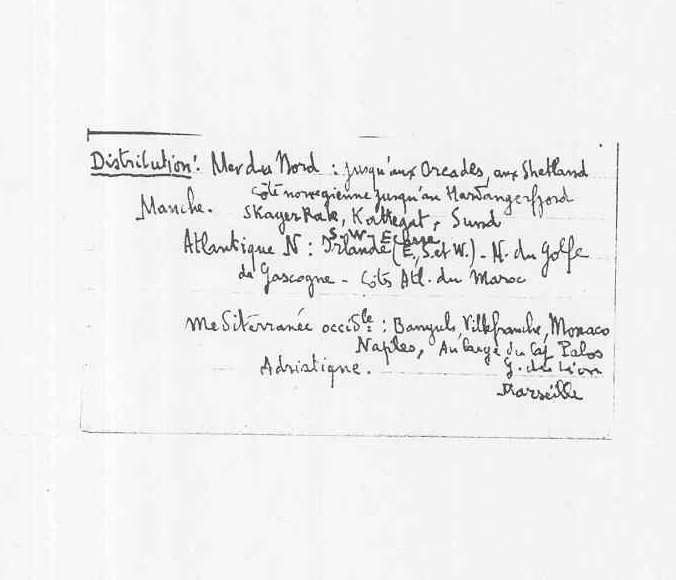 Distribution : Mer du Nord : jusqu'aux Orcades, aux Shetland
côte norvegienne jusqu'au Hardangerfjord
Manche. Skager Rak, Kattegat, Sund
S-W- Ecosse
Atlantique N : Irlande (E., S. et W.) - N. du Golfe
de Gascogne - côts Atl. du Maroc
Mediterranée occid.le : Banyuls, Villefranche, Monaco
Naples, Au large du Cap Palos
Adriatique. G. du Lion
Marseille